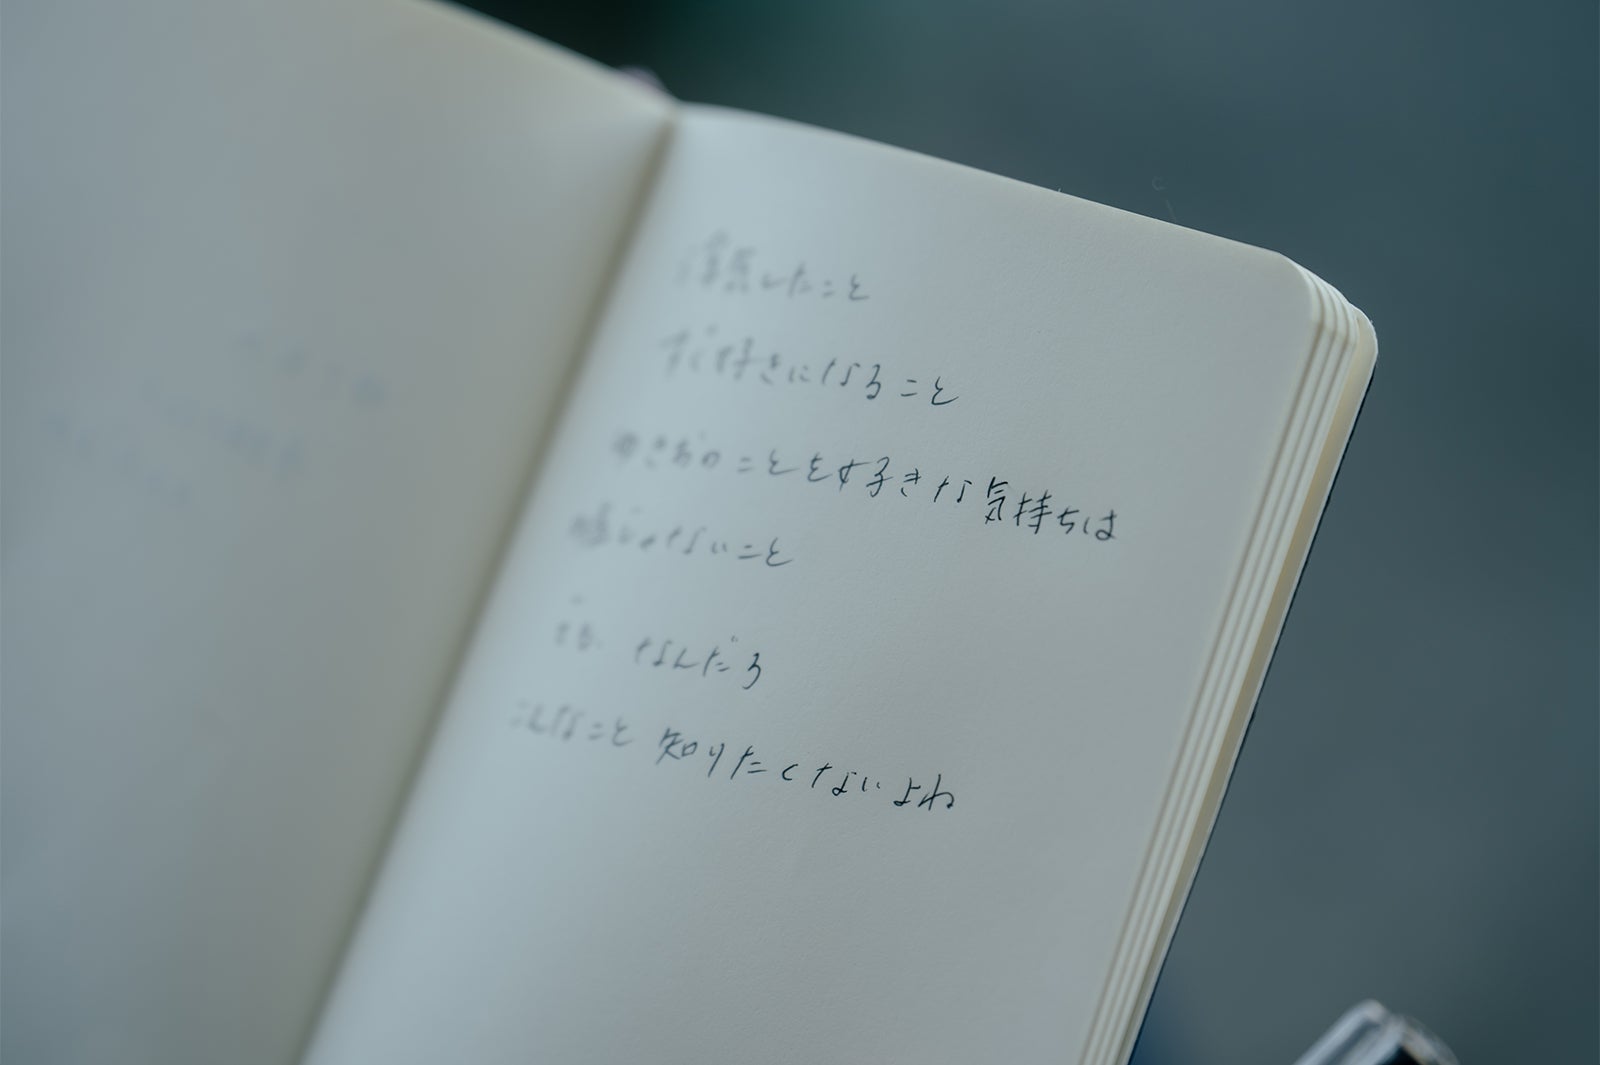 浮気したこと
すぐ好きになること
ゆきおのことを好きな気持ちは
嘘じゃないこと
なんだろ
こんなこと 知りたくないよね